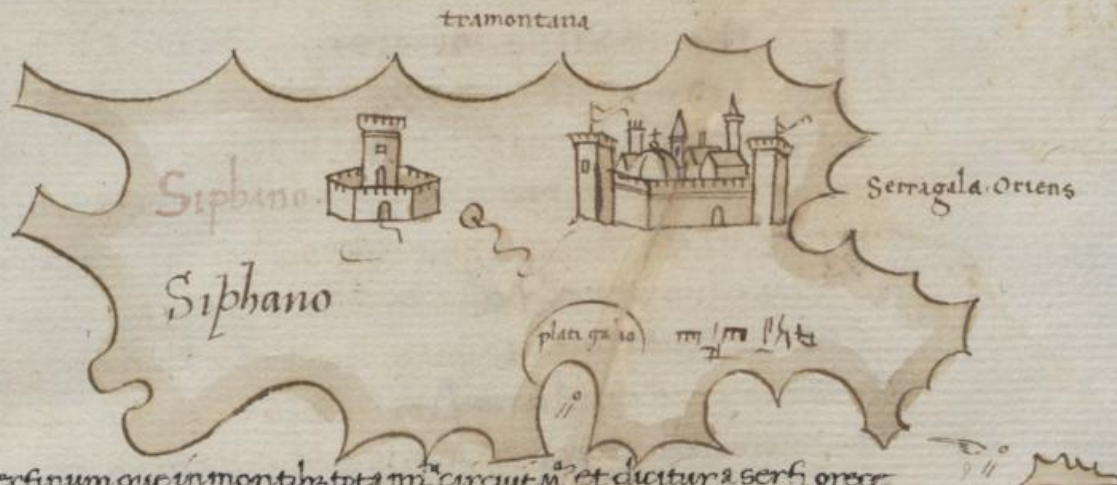 tramontana
Siphano.
Serragala. Oriens
Siphano
plati galio
11°
11°
que in montibꝫ tota circuit et dicitur a serfi grece